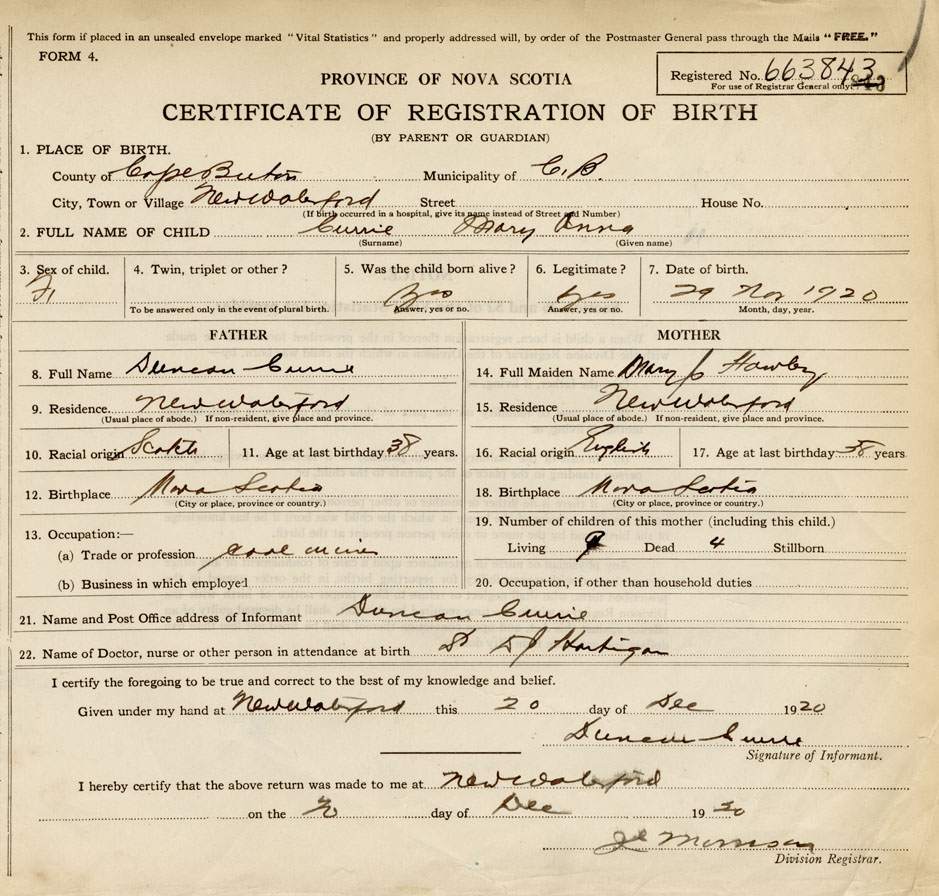 This form if placed in an unsealed envelope marked "Vital Statistics" and properly addressed will, by order of the Postmaster General pass through the Mails "FREE."
FORM 4.
PROVINCE OF NOVA SCOTIA
Registered No. 663843
For use of Registrar General only.
CERTIFICATE OF REGISTRATION OF BIRTH
(BY PARENT OR GUARDIAN)
1. PLACE OF BIRTH.
County of Cape Breton Municipality of C. B.
City, Town or Village New Waterford Street House No.
(If birth occurred in a hospital, give its name instead of Street and Number)
2. FULL NAME OF CHILD Currie Mary Anna
(Surname) (Given name)
3. Sex of child. 4. Twin, triplet or other? 5. Was the child born alive? 6. Legitimate? 7. Date of birth.
F yes yes 29 Nov 1920
To be answered only in the event of plural birth. Answer, yes or no. Answer, yes or no. Month, day, year.
FATHER MOTHER
8. Full Name Duncan Currie 14. Full Maiden Name Mary J Hawley
9. Residence. New Waterford 15. Residence New Waterford
(Usual place of abode.) If non-resident, give place and province. (Usual place of abode.) If non-resident, give place and province.
10. Racial origin Scotch 11. Age at last birthday 38 years. 16. Racial origin English 17. Age at last birthday 38 years
12. Birthplace Nova Scotia 18. Birthplace Nova Scotia
(City or place, province or country.) (City or place, province or country.)
13. Occupation:— 19. Number of children of this mother (including this child.)
(a) Trade or profession coal miner Living Dead 4 Stillborn
(b) Business in which employed 20. Occupation, if other than household duties
21. Name and Post Office address of Informant Duncan Currie
22. Name of Doctor, nurse or other person in attendance at birth Dr D J Hartigan
I certify the foregoing to be true and correct to the best of my knowledge and belief.
Given under my hand at New Waterford this 20 day of Dec 1920
Duncan Currie
Signature of Informant.
I hereby certify that the above return was made to me at New Waterford
on the 20 day of Dec 1920
Morrison
Division Registrar.